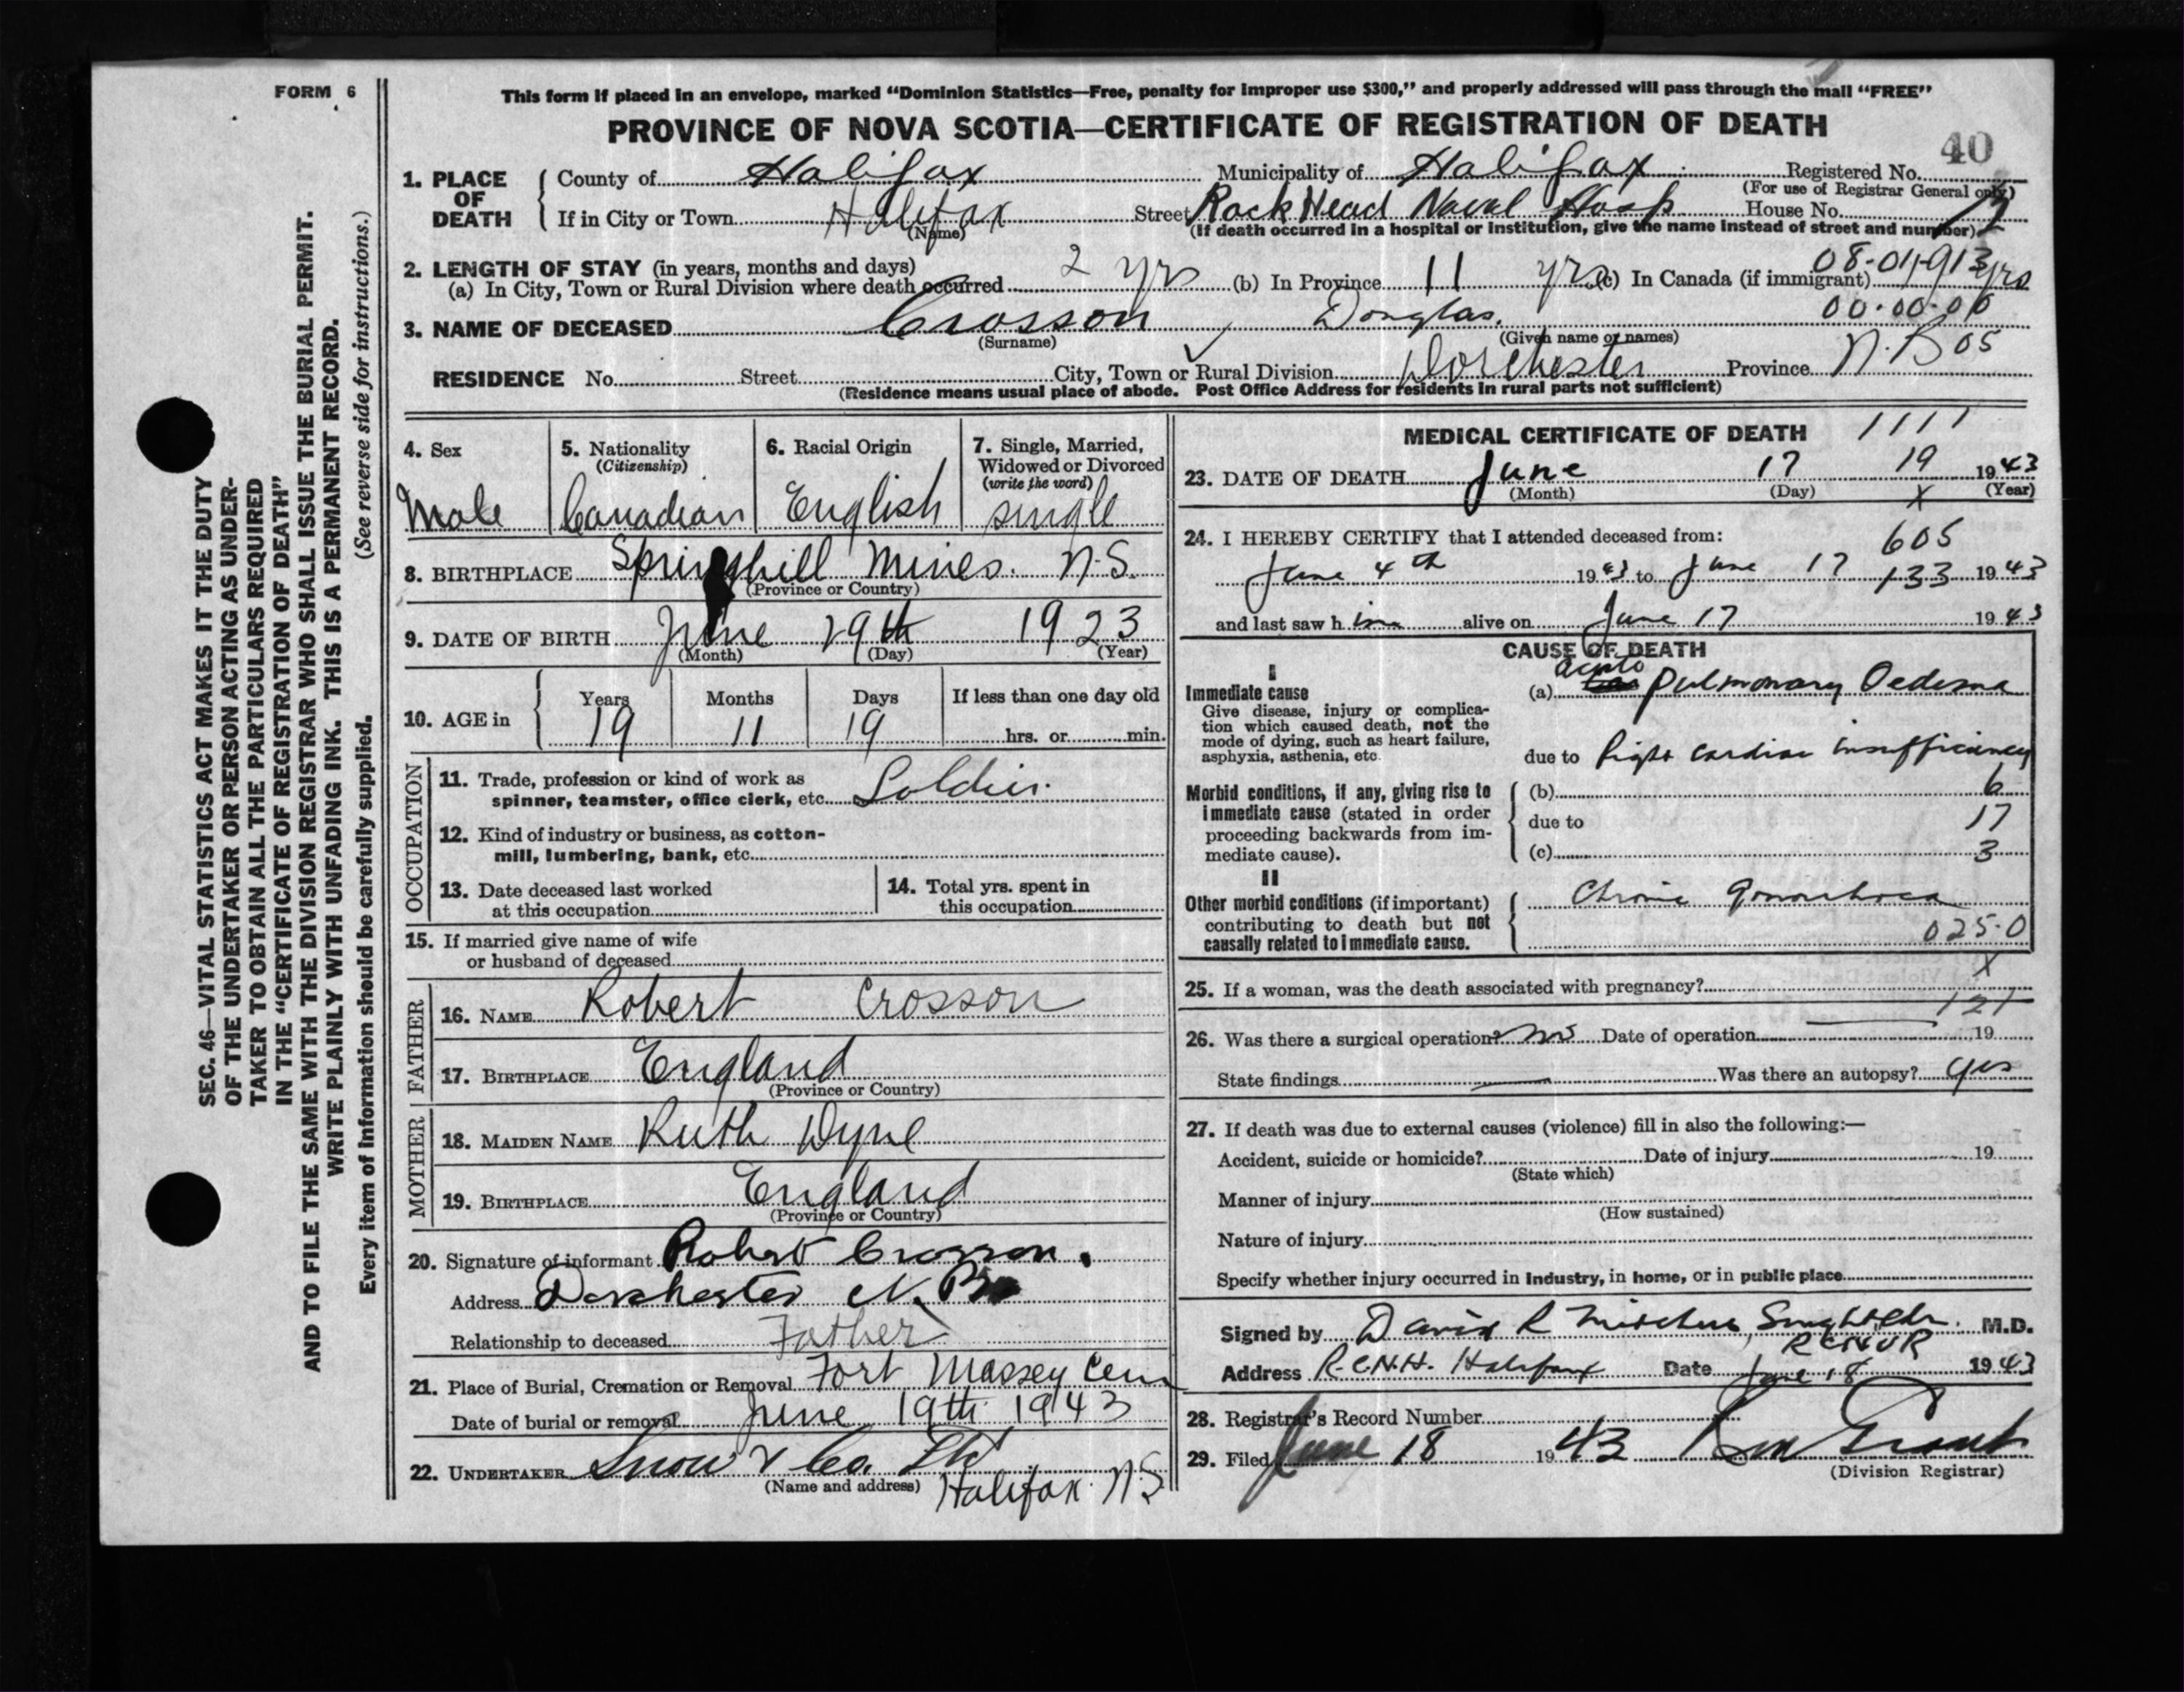 FORM 6
This form if placed in an envelope, marked “Dominion Statistics—Free, penalty for improper use $300,” and properly addressed will pass through the mail “FREE”
PROVINCE OF NOVA SCOTIA—CERTIFICATE OF REGISTRATION OF DEATH
40
1. PLACE OF DEATH
County of Halifax Municipality of Halifax Registered No.
(For use of Registrar General only)
If in City or Town Halifax Street Rock Head Naval Hosp House No.
(Name) (If death occurred in a hospital or institution, give the name instead of street and number)
2. LENGTH OF STAY (in years, months and days)
(a) In City, Town or Rural Division where death occurred 2 yrs (b) In Province 11 yrs (c) In Canada (if immigrant) yrs
00-00-00
3. NAME OF DECEASED Crosson Douglas.
(Surname) (Given name or names)
RESIDENCE No. Street City, Town or Rural Division Dorchester Province N.B 05
(Residence means usual place of abode. Post Office Address for residents in rural parts not sufficient)
4. Sex
Male
5. Nationality
(Citizenship)
Canadian
6. Racial Origin
English
7. Single, Married, Widowed or Divorced
(write the word)
single
8. BIRTHPLACE Springhill Mines. N.S.
(Province or Country)
9. DATE OF BIRTH June 29th 1923
(Month) (Day) (Year)
10. AGE in
Years Months Days If less than one day old
19 11 19 hrs. or min.
OCCUPATION
11. Trade, profession or kind of work as
spinner, teamster, office clerk, etc. Soldier.
12. Kind of industry or business, as cotton-
mill, lumbering, bank, etc.
13. Date deceased last worked
at this occupation
14. Total yrs. spent in
this occupation
15. If married give name of wife
or husband of deceased
FATHER
16. NAME Robert Crosson
17. BIRTHPLACE England
(Province or Country)
MOTHER
18. MAIDEN NAME Ruth Dyne
19. BIRTHPLACE England
(Province or Country)
20. Signature of informant Robert Crosson.
Address Dorchester N.B
Relationship to deceased Father
21. Place of Burial, Cremation or Removal Fort Massey Cem
Date of burial or removal June 19th 1943
22. UNDERTAKER Snow & Co. Ltd
(Name and address) Halifax N.S
MEDICAL CERTIFICATE OF DEATH 1111
19
23. DATE OF DEATH June 17 1943
(Month) (Day) (Year)
X
24. I HEREBY CERTIFY that I attended deceased from:
605
June 4th 1943 to June 17 1943
133
and last saw him alive on June 17 1943
CAUSE OF DEATH
I
Immediate cause
Give disease, injury or complica-
tion which caused death, not the
mode of dying, such as heart failure,
asphyxia, asthenia, etc.
acute
(a) Pulmonary Oedema
due to Right cardiac insufficiency
Morbid conditions, if any, giving rise to
immediate cause (stated in order
proceeding backwards from im-
mediate cause).
(b) 6
due to 17
(c) 3
II
Other morbid conditions (if important)
contributing to death but not
causally related to immediate cause.
Chronic Gonorrhoea
025.0
X
25. If a woman, was the death associated with pregnancy?
121
26. Was there a surgical operation? no Date of operation 19
State findings Was there an autopsy? yes
27. If death was due to external causes (violence) fill in also the following:—
Accident, suicide or homicide? Date of injury 19
(State which)
Manner of injury
(How sustained)
Nature of injury
Specify whether injury occurred in industry, in home, or in public place
Signed by David R M.D.
RCNVR
Address R.C.N.H. Halifax Date June 18 1943
28. Registrar's Record Number
29. Filed June 18 1943 Grant
(Division Registrar)
SEC. 46—VITAL STATISTICS ACT MAKES IT THE DUTY
OF THE UNDERTAKER OR PERSON ACTING AS UNDER-
TAKER TO OBTAIN ALL THE PARTICULARS REQUIRED
IN THE “CERTIFICATE OF REGISTRATION OF DEATH”
AND TO FILE THE SAME WITH THE DIVISION REGISTRAR WHO SHALL ISSUE THE BURIAL PERMIT.
WRITE PLAINLY WITH UNFADING INK. THIS IS A PERMANENT RECORD.
Every item of information should be carefully supplied. (See reverse side for instructions.)